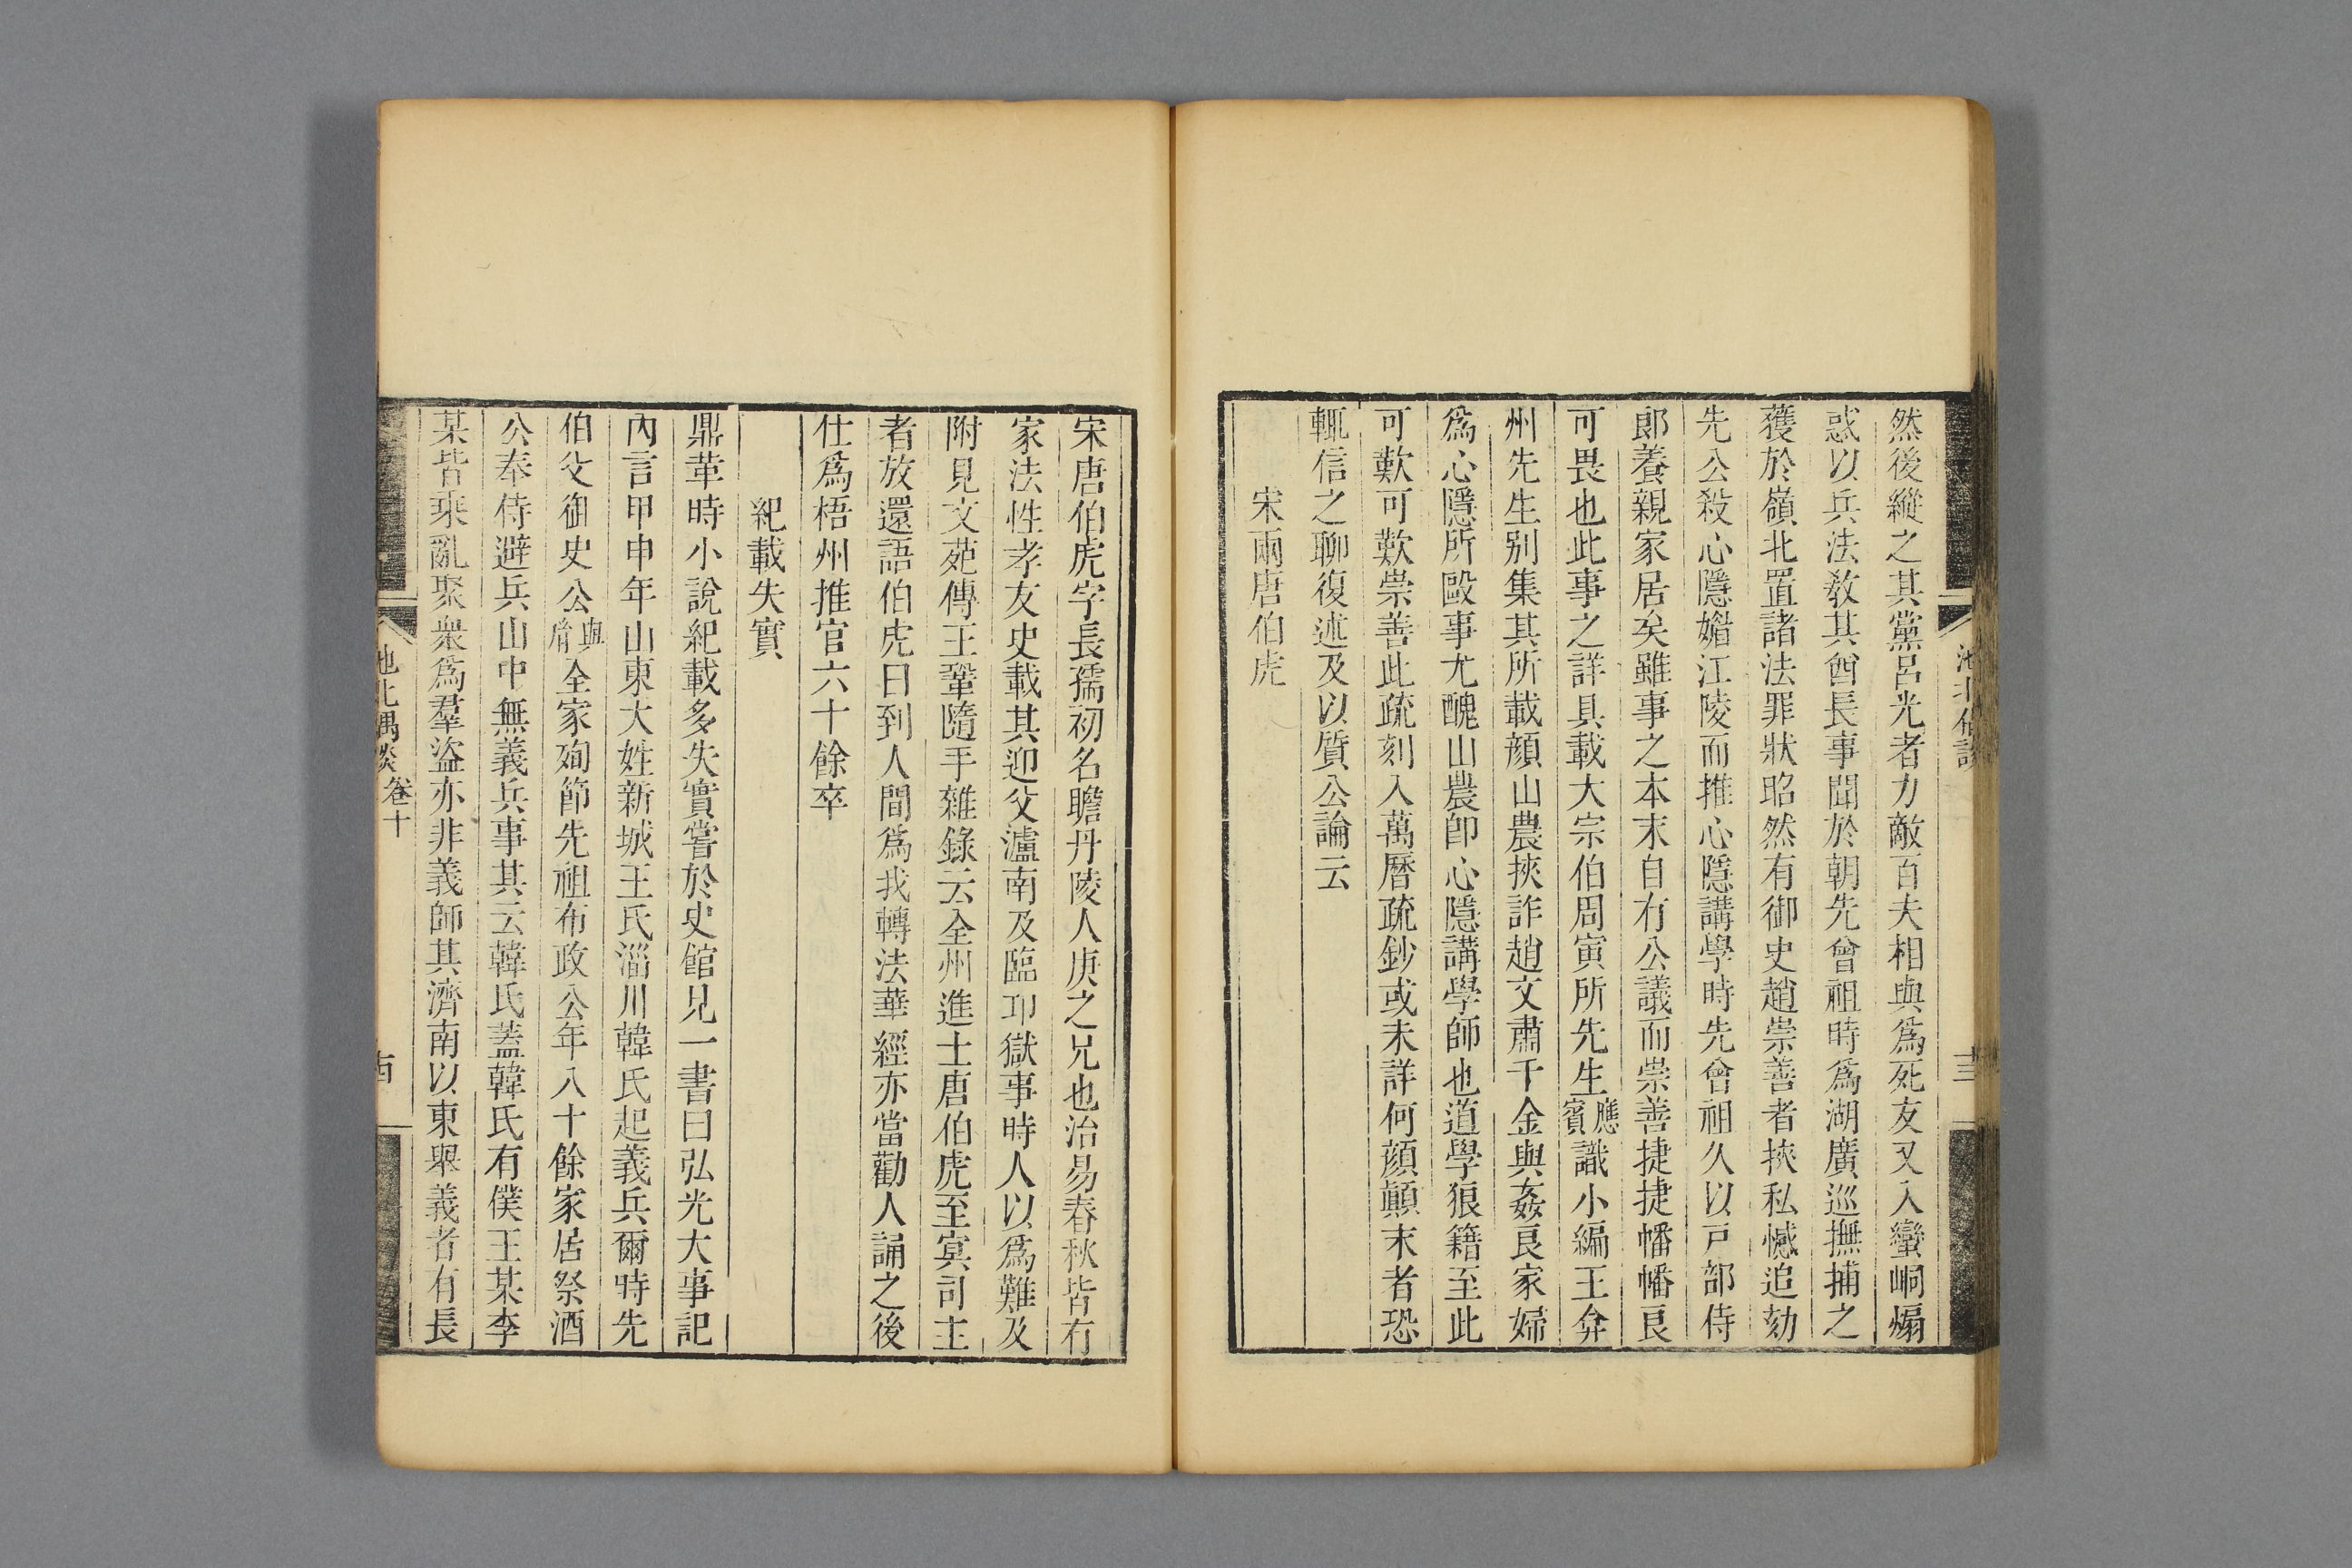 然後縱之其黨呂光者力敵百夫相與爲死友又入蠻峒煽
惑以兵法敎其酋長事聞於朝先曾祖時爲湖廣巡撫捕之
獲於嶺北置諸法罪狀昭然有御史趙崇善者挾私憾追劾
先公殺心隱媚江陵而推心隱講學時先曾祖久以戸部侍
郎養親家居矣雖事之本末自有公議而崇善捷捷幡幡良
可畏也此事之詳具載大宗伯周寅所先生應賔識小編王弇
州先生别集其所載顔山農挾詐趙文肅千金與姦良家婦
爲心隱所毆事尤醜山農卽心隱講學師也道學狼籍至此
可歎可歎崇善此疏刻入萬曆疏鈔或未詳何顔顚末者恐
輒信之聊復述及以質公論云
宋兩唐伯虎
宋唐伯虎字長孺初名瞻丹陵人庚之兄也治易春秋皆有
家法性孝友史載其迎父瀘南及臨卭獄事時人以爲難及
附見文苑傳王鞏隨手雜錄云全州進士唐伯虎至冥司主
者放還語伯虎曰到人間爲我轉法華經亦當勸人誦之後
仕爲梧州推官六十餘卒
紀載失實
鼎革時小說紀載多失實嘗於史館見一書曰弘光大事記
內言甲申年山東大姓新城王氏淄川韓氏起義兵爾時先
伯父御史公與㣧全家殉節先祖布政公年八十餘家居祭酒
公奉侍避兵山中無義兵事其云韓氏蓋韓氏有僕王某李
某皆乘亂聚衆爲羣盜亦非義師其濟南以東舉義者有長
池北偶談 卷十